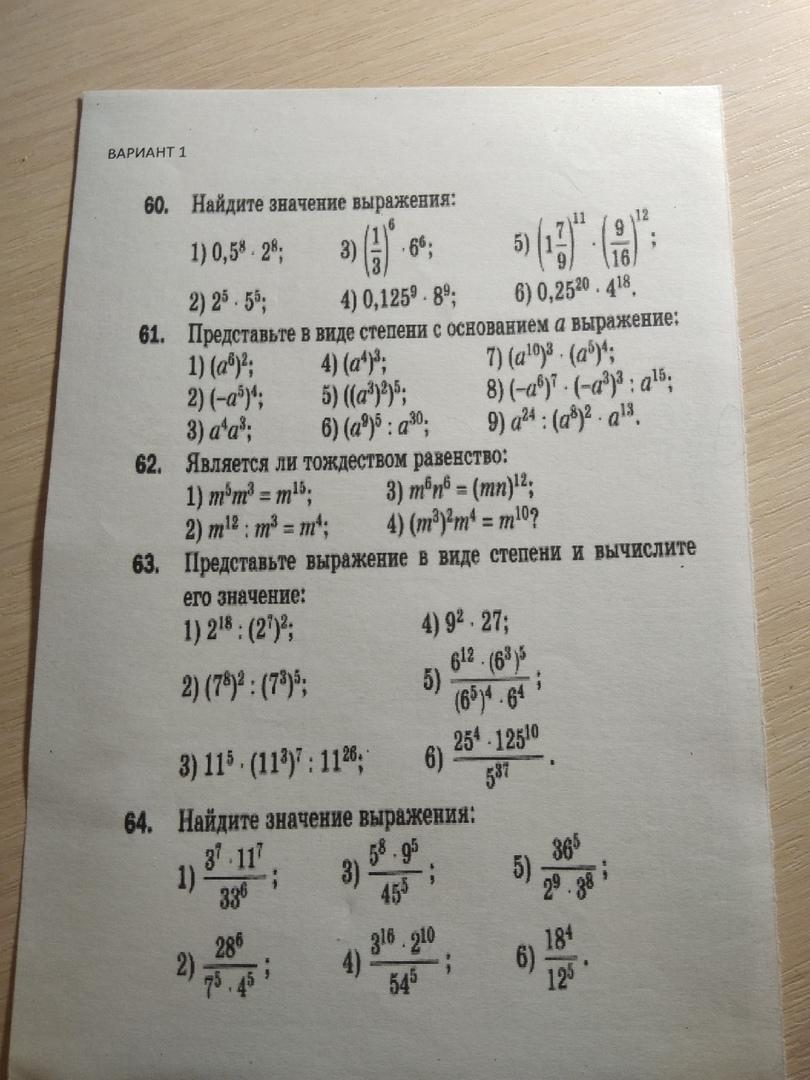 ВАРИАНТ 1
60. Найдите значение выражения:
1) 0,5⁸ · 2⁸; 3) (1/3)⁶ · 6⁶; 5) (1 7/9)¹¹ · (9/16)¹²;
2) 2⁵ · 5⁵; 4) 0,125⁹ · 8⁹; 6) 0,25²⁰ · 4¹⁸.
61. Представьте в виде степени с основанием a выражение:
1) (a⁶)²; 4) (a⁴)³; 7) (a¹⁰)³ · (a⁵)⁴;
2) (–a⁵)⁴; 5) ((a³)²)⁵; 8) (–a⁶)⁷ · (–a³)³ : a¹⁵;
3) a⁴a³; 6) (a⁹)⁵ : a³⁰; 9) a²⁴ : (a⁸)² · a¹³.
62. Является ли тождеством равенство:
1) m⁵m³ = m¹⁵; 3) m⁶n⁶ = (mn)¹²;
2) m¹² : m³ = m⁴; 4) (m³)²m⁴ = m¹⁰?
63. Представьте выражение в виде степени и вычислите
его значение:
1) 2¹⁸ : (2⁷)²; 4) 9² · 27;
2) (7⁸)² : (7³)⁵; 5) (6¹² · (6³)⁵)/((6⁵)⁴ · 6⁴);
3) 11⁵ · (11³)⁷ : 11²⁶; 6) (25⁴ · 125¹⁰)/5³⁷.
64. Найдите значение выражения:
1) (3⁷ · 11⁷)/33⁶; 3) (5⁸ · 9⁵)/45⁵; 5) 36⁵/(2⁹ · 3⁸);
2) 28⁶/(7⁵ · 4⁵); 4) (3¹⁶ · 2¹⁰)/54⁵; 6) 18⁴/12⁵.